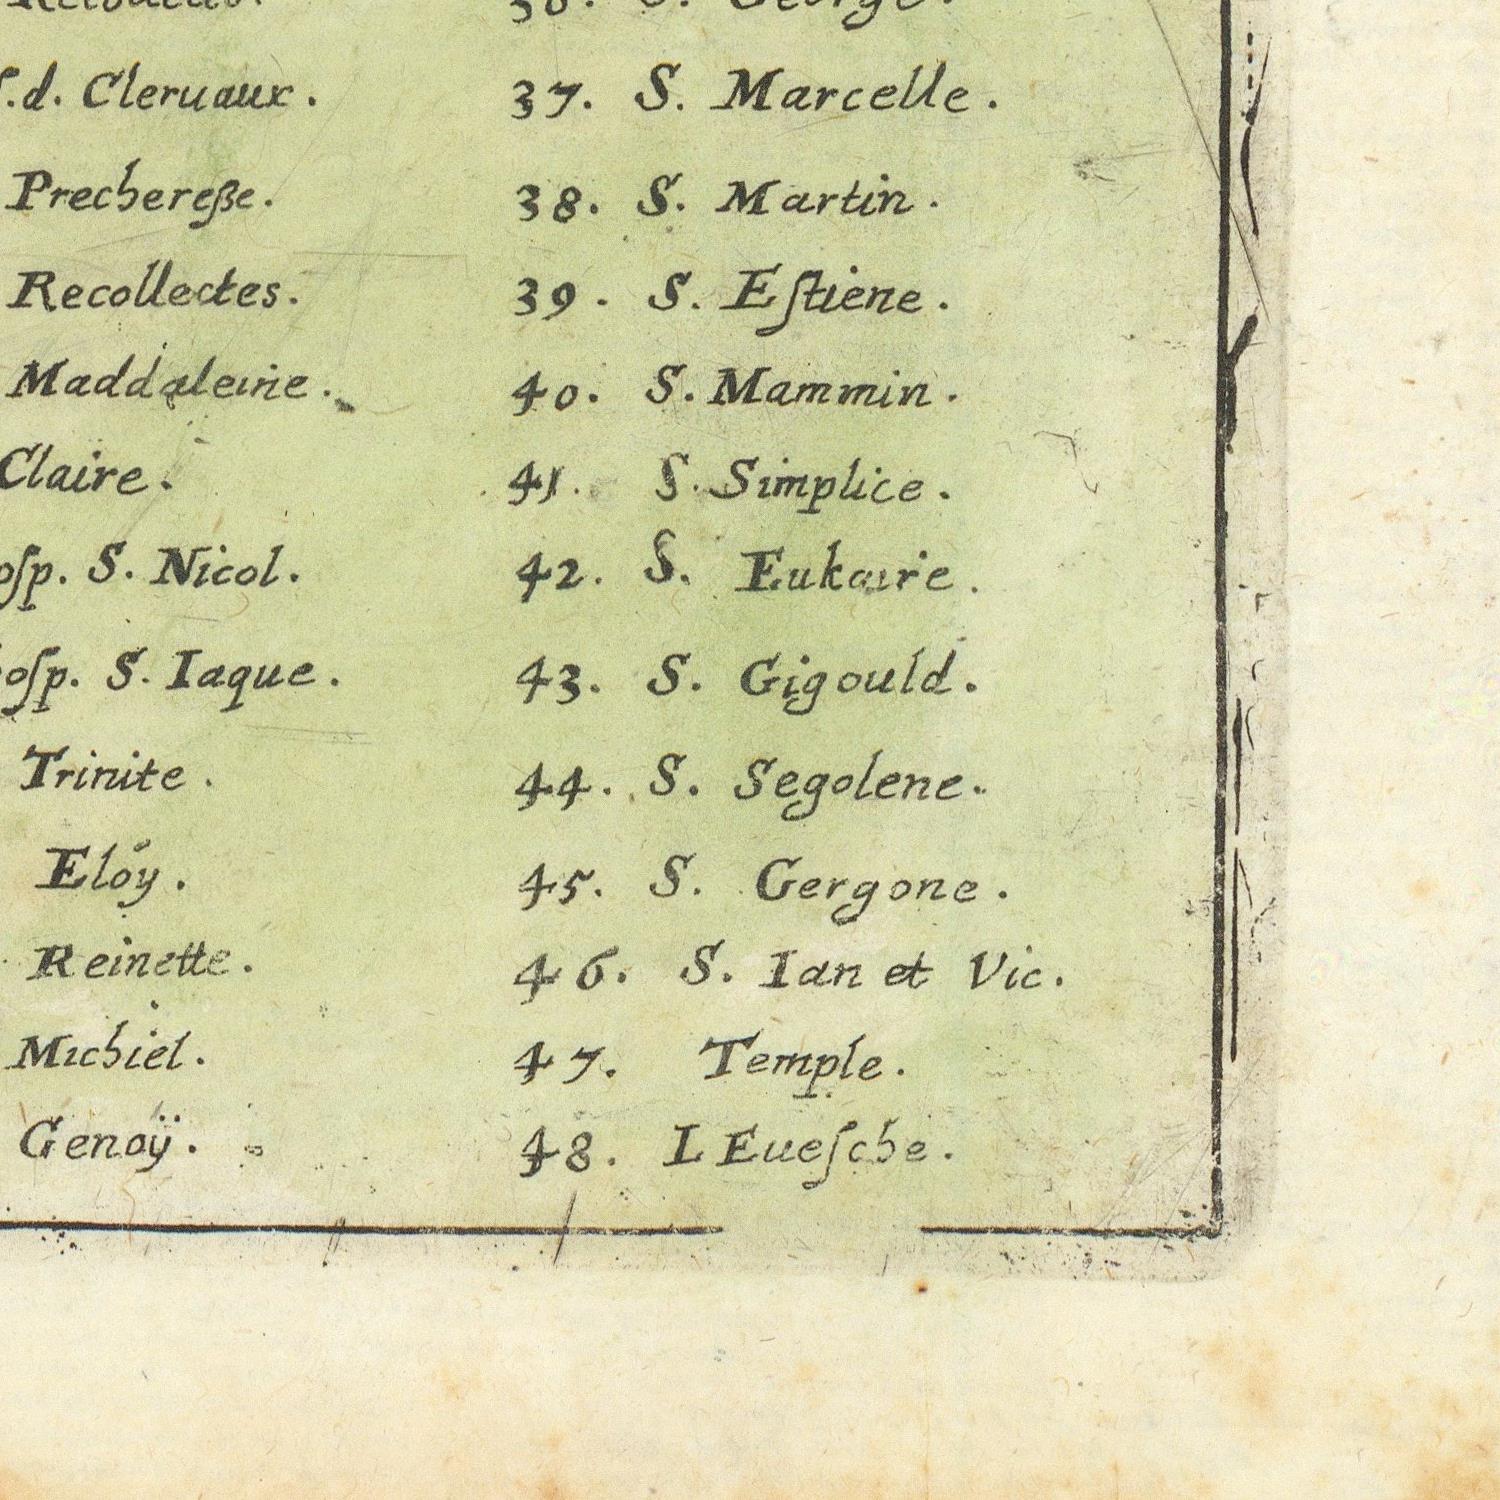 36. S. George.
.d. Cleruaux. 37. S. Marcelle.
Prechereße. 38. S. Martin.
Recollectes. 39. S. Eſtiene.
Maddaleine. 40. S. Mammin.
Claire. 41. S. Simplice.
oſp. S. Nicol. 42. S. Eukaire.
oſp. S. Iaque. 43. S. Gigould.
Trinite. 44. S. Segolene.
Elóy. 45. S. Gergone.
Reinette. 46. S. Ian et Vic.
Michiel. 47. Temple.
Genoÿ. 48. L Eueſche.